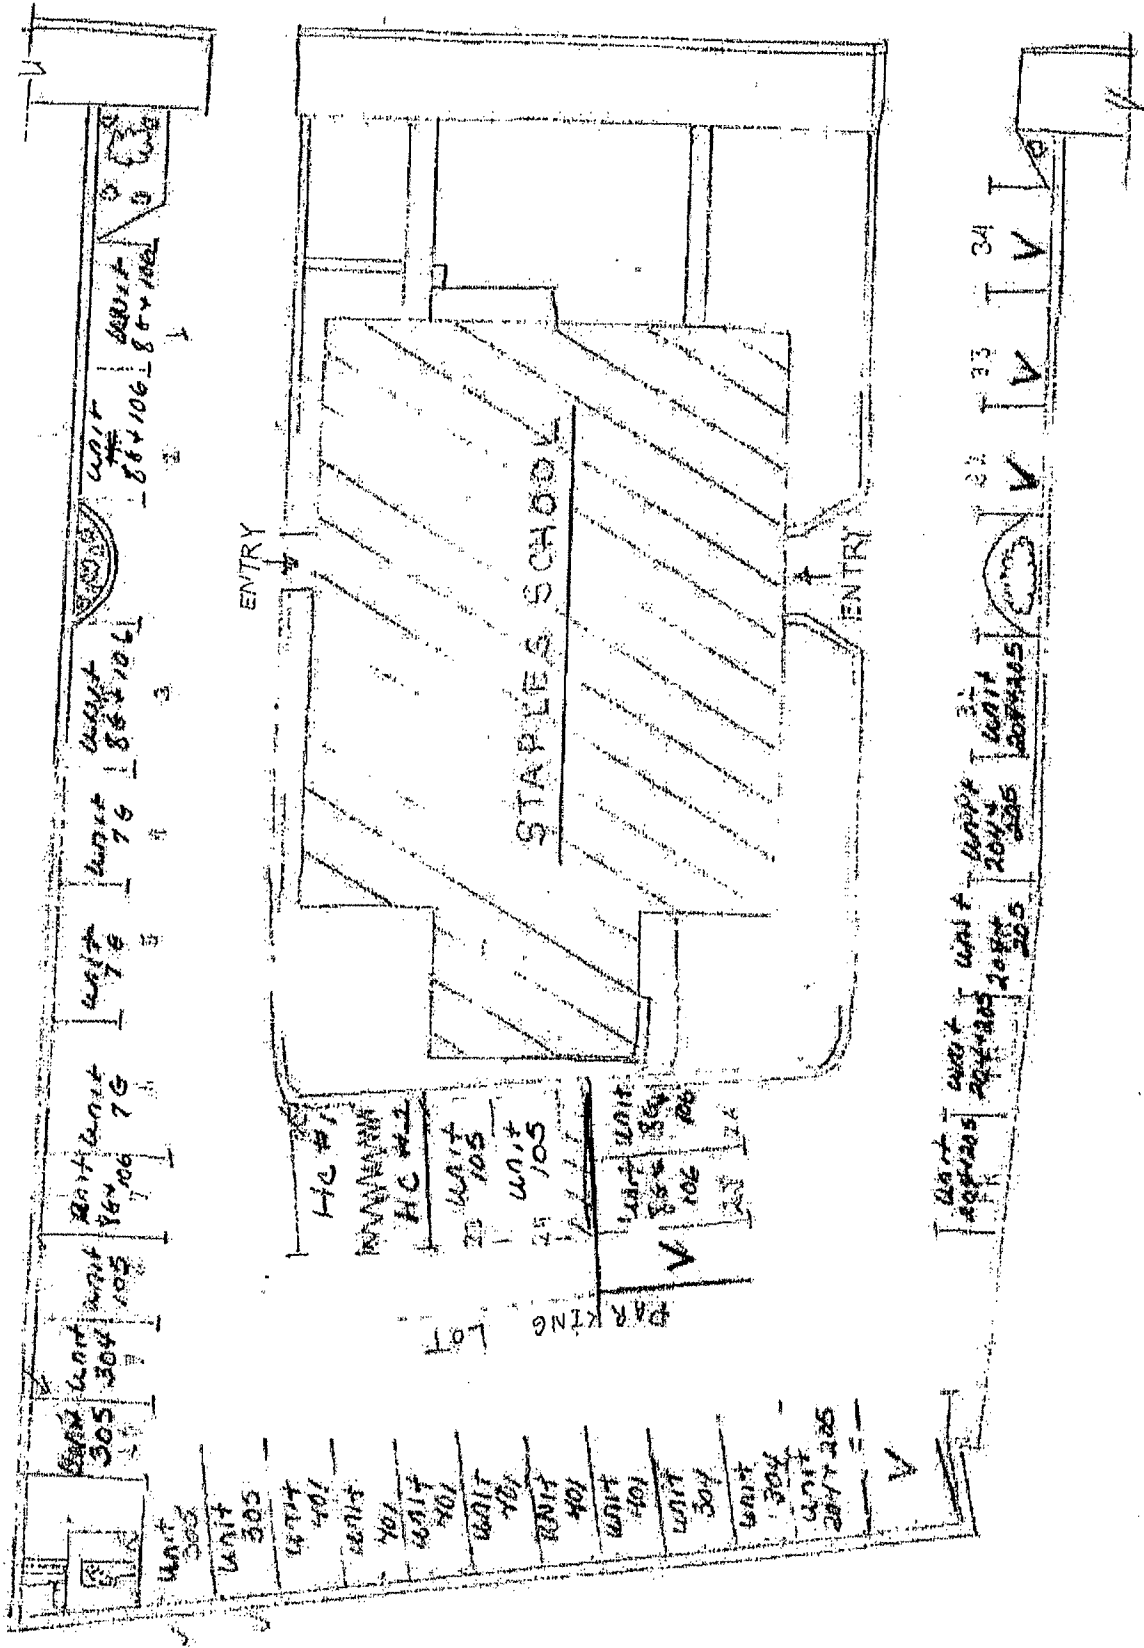 STAPLES SCHOOL
ENTRY
ENTRY
PARKING
LOT
unit
86+106
1
unit
86+106
2
unit
86+106
3
unit
76
unit
76
unit
76
unit
86+
106
7
unit
105
unit
304
305
unit
305
unit
305
unit
401
unit
401
unit
401
unit
401
unit
401
unit
401
unit
304
unit
304
unit
204+205
V
HC #1
HC #2
unit
105
unit
105
unit
86+
106
unit
86+
106
V
unit
204+205
unit
204+205
unit
204+
205
unit
204+
205
31
unit
204+205
V
33
V
34
V